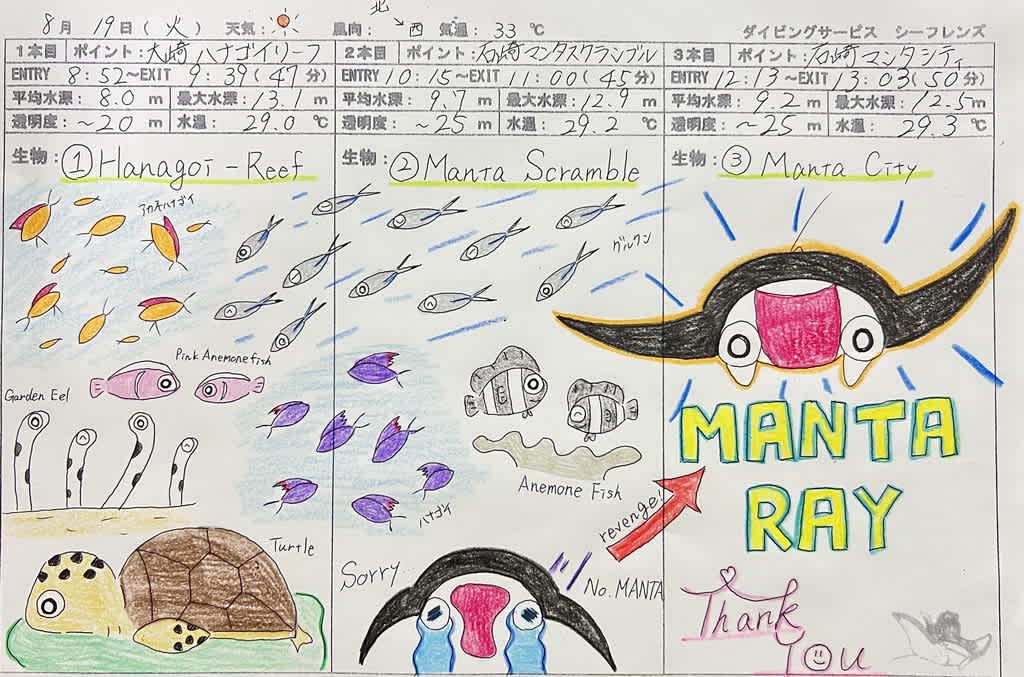 8月 19日(火) 天気: 風向: 北→西 気温: 33 ℃ ダイビングサービス シーフレンズ
1本目 ポイント:大崎ハナゴイリーフ
ENTRY 8:52~EXIT 9:39(47分)
平均水深: 8.0 m 最大水深:13.1 m
透明度: ~20 m 水温: 29.0 ℃
生物: ①Hanagoi-Reef
アカネハナゴイ
Pink Anemonefish
Garden Eel
Turtle
2本目 ポイント:石崎マンタスクランブル
ENTRY 10:15~EXIT 11:00(45分)
平均水深: 9.7 m 最大水深:12.9 m
透明度: ~25 m 水温: 29.2 ℃
生物: ②Manta Scramble
グルクン
Anemone Fish
ハナゴイ
Sorry...
No.MANTA
revenge!
3本目 ポイント:石崎マンタシティ
ENTRY 12:13~EXIT 13:03(50分)
平均水深: 9.2 m 最大水深:12.5m
透明度: ~25 m 水温: 29.3 ℃
生物: ③ Manta City
MANTA
RAY
Thank
You